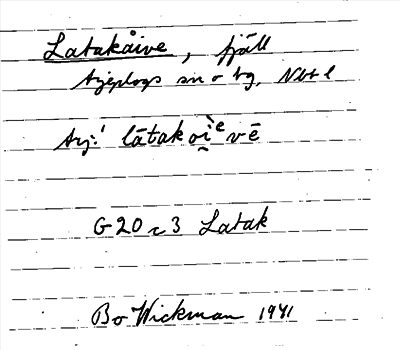 Latakåive, fjäll
Arjeplogs sn o tg, Nbt l
Arj:
G20 c 3 Latak
Bo Wickman 1941